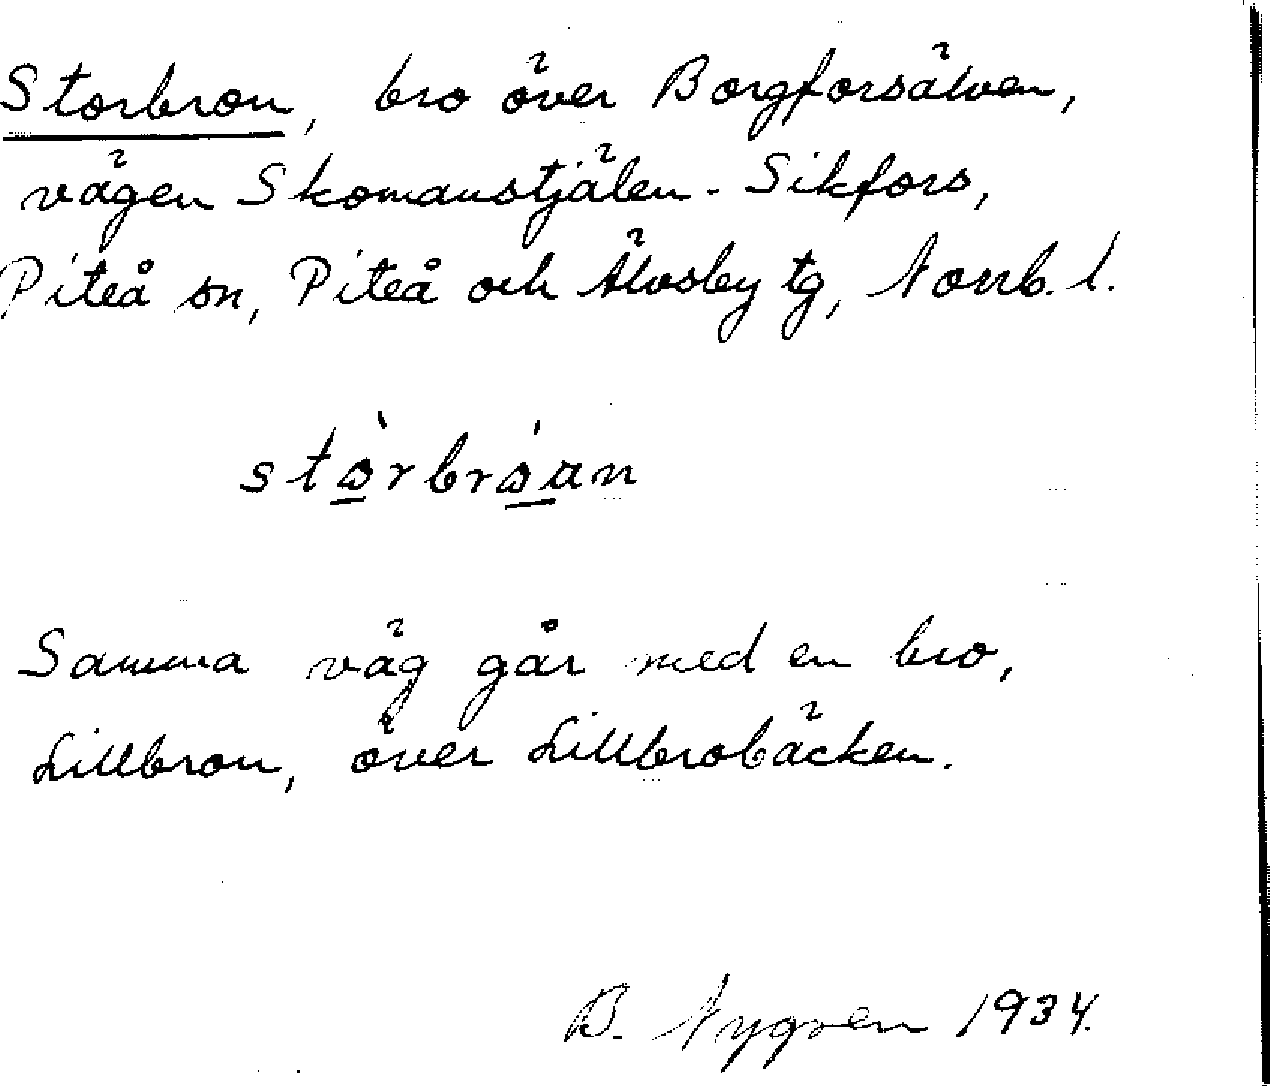 Storbron, bro över Borgforsälven,
vägen Skomanstjälen - Sikfors,
Piteå sn, Piteå och Älvsby tg, Norrb. l.
stòrbróan
Samma väg går med en bro,
Lillbron, över Lillbrobäcken.
B. Nygren 1934.